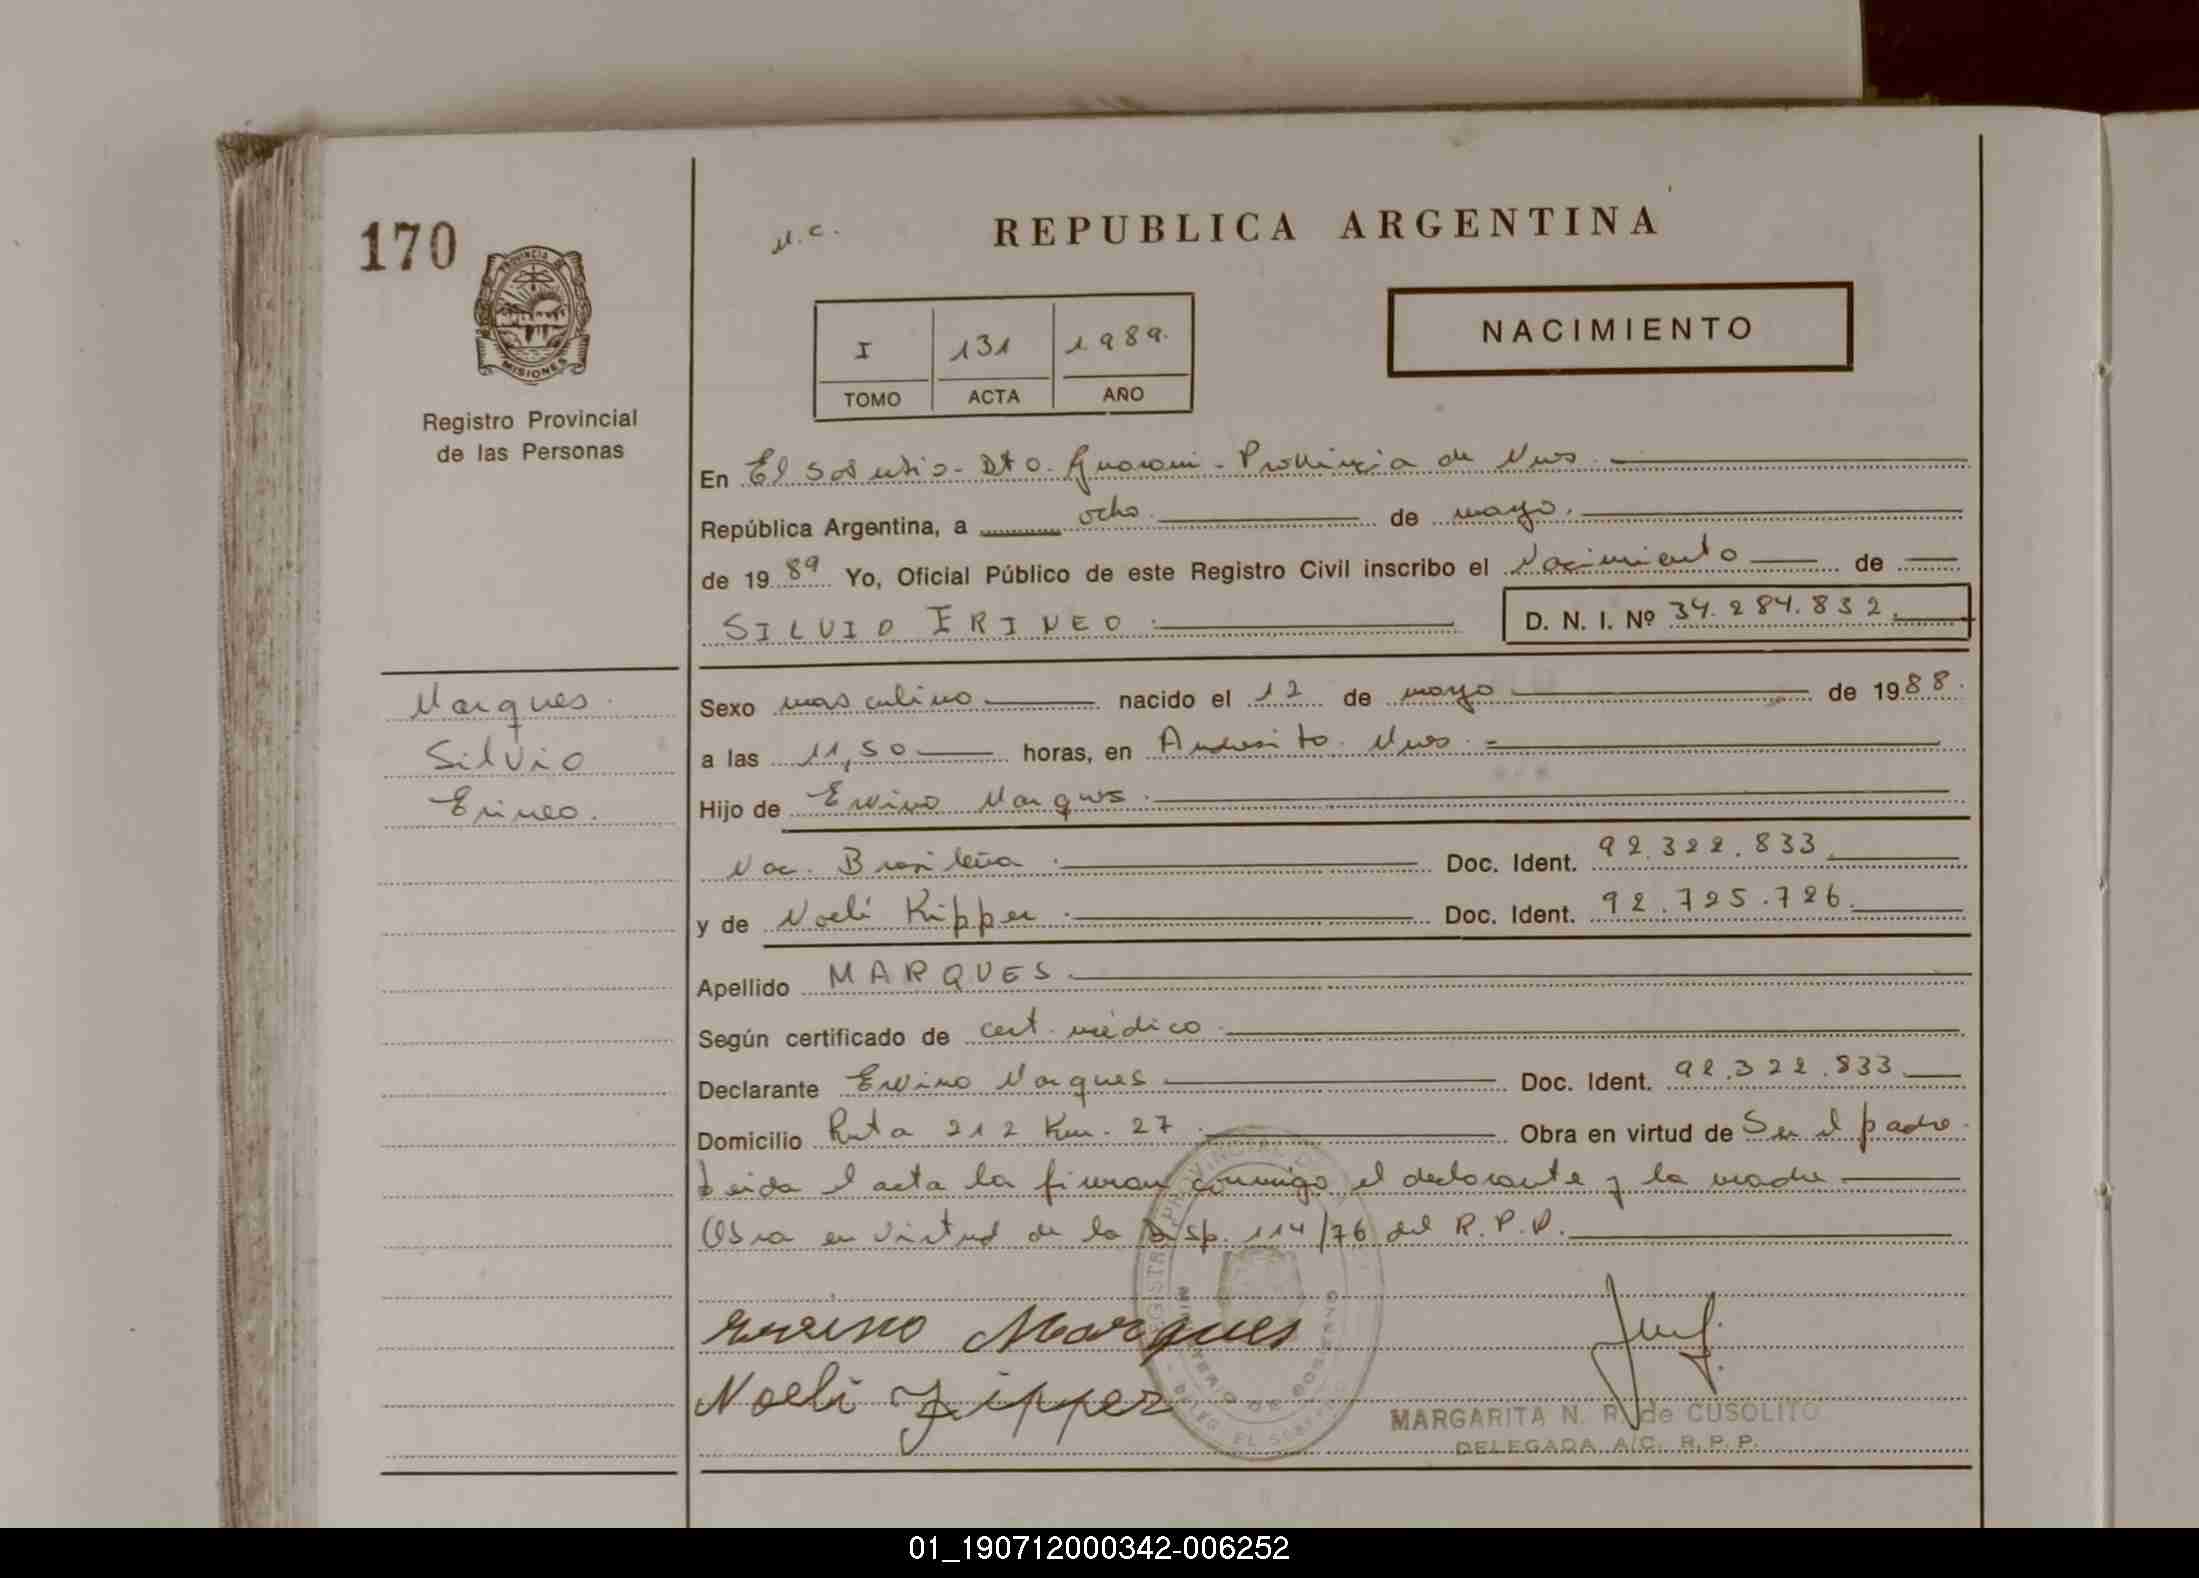 170
PROVINCIA DE
MISIONES
Registro Provincial
de las Personas
N.C.
REPUBLICA ARGENTINA
I 131 1989.
TOMO ACTA AÑO
NACIMIENTO
En El Soberbio - Dto. Guarani - Provincia de Mnes
República Argentina, a ocho de mayo.
de 1989 Yo, Oficial Público de este Registro Civil inscribo el Nacimiento de
SILVIO IRINEO D. N. I. Nº 34.284.832.
Marques
Silvio
Erineo.
Sexo masculino nacido el 12 de mayo de 1988.
a las 11,50 horas, en Andresito. Mnes.
Hijo de Ervino Marques
Nac. Brasileña Doc. Ident. 92.322.833
y de Noeli Kipper Doc. Ident. 92.725.726.
Apellido MARQUES
Según certificado de cert. médico
Declarante Ervino Marques Doc. Ident. 92.322.833
Domicilio Ruta 212 Km. 27 Obra en virtud de Ser el padre.
Leida el acta la firman conmigo el declarante y la madre
Obra en virtud de la Disp. 114/76 del R.P.P.
Ervino Marques
Noeli Kipper
MINISTERIO DE GOBIERNO
MARGARITA N. R. de CUSOLITO
DELEGADA A/C. R.P.P.
01_190712000342-006252